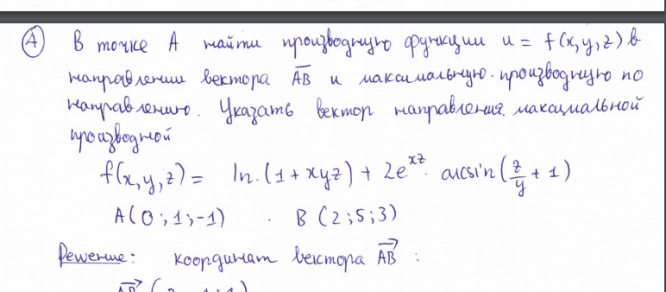 ④ В точке А найти производную функции u = f(x,y,z) в
направлении вектора AB и максимальную производную по
направлению. Указать вектор направления максимальной
производной
f(x,y,z) = ln.(1+xyz) + 2e^{xz}. arcsin(z/y + 1)
A(0;1;-1) . B(2;5;3)
Решение: координат вектора AB :